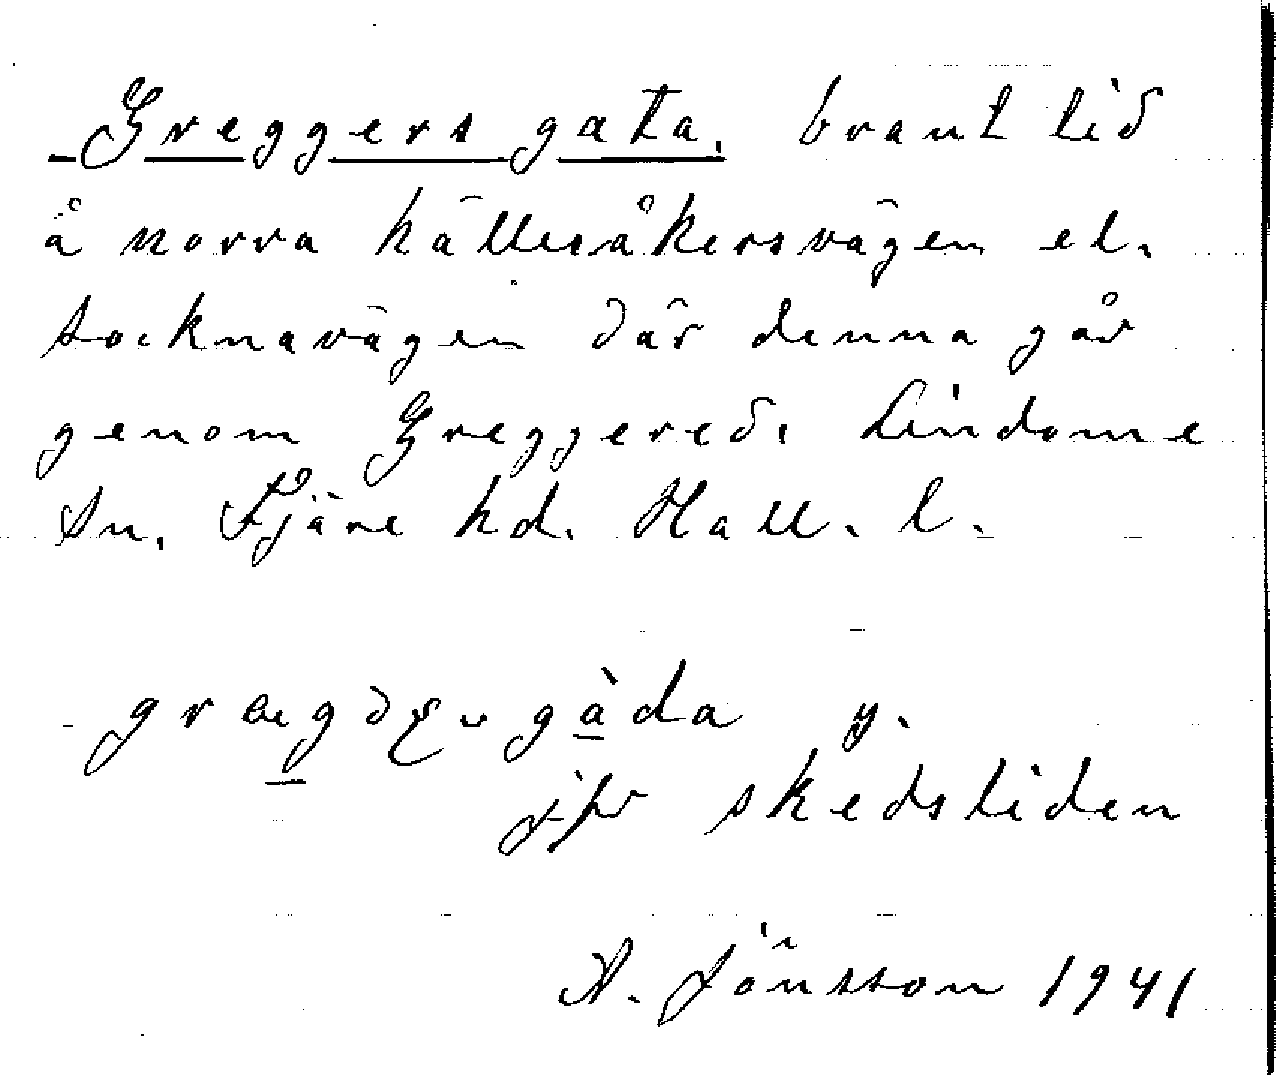 Greggers gata. brant lid
å norra hällesåkersvägen el.
socknavägen där denna går
genom Greggered. Lindome
sn. Fjäre hd. Hall. l.
gàda y.
jfr skedsliden
A. Jönsson 1941